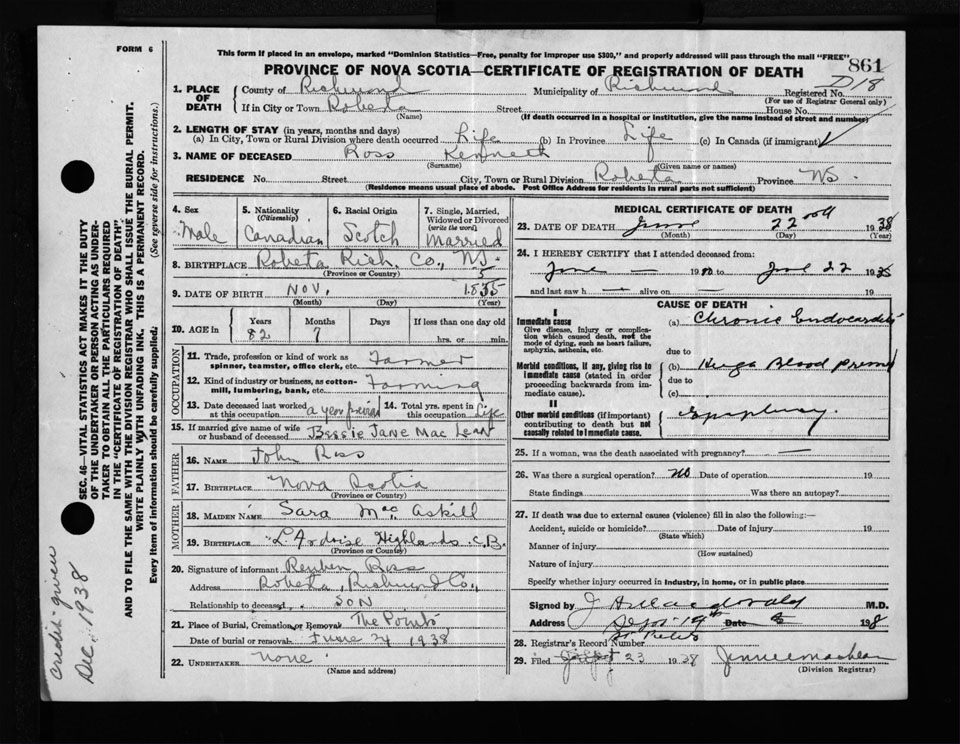 FORM 6
This form if placed in an envelope, marked "Dominion Statistics—Free, penalty for improper use $300," and properly addressed will pass through the mail "FREE"
861
PROVINCE OF NOVA SCOTIA—CERTIFICATE OF REGISTRATION OF DEATH
D18
1. PLACE OF DEATH
County of Richmond Municipality of Richmond Registered No.
(For use of Registrar General only)
If in City or Town Roberta Street House No.
(Name) (If death occurred in a hospital or institution, give the name instead of street and number)
2. LENGTH OF STAY (in years, months and days)
(a) In City, Town or Rural Division where death occurred Life (b) In Province Life (c) In Canada (if immigrant)
3. NAME OF DECEASED Ross Kenneth
(Surname) (Given name or names)
RESIDENCE No. Street City, Town or Rural Division Roberta Province NS.
(Residence means usual place of abode. Post Office Address for residents in rural parts not sufficient)
4. Sex Male
5. Nationality (Citizenship) Canadian
6. Racial Origin Scotch
7. Single, Married, Widowed or Divorced (write the word) Married
8. BIRTHPLACE Roberta Rich. Co., NS.
(Province or Country)
9. DATE OF BIRTH Nov. 1835 5
(Month) (Day) (Year)
10. AGE in Years 82 Months 7 Days If less than one day old hrs. or min.
OCCUPATION
11. Trade, profession or kind of work as spinner, teamster, office clerk, etc. Farmer
12. Kind of industry or business, as cotton-mill, lumbering, bank, etc. Farming
13. Date deceased last worked at this occupation a year 14. Total yrs. spent in this occupation Life
15. If married give name of wife or husband of deceased Bessie Jane Mac Lean
FATHER
16. NAME John Ross
17. BIRTHPLACE Nova Scotia
(Province or Country)
MOTHER
18. MAIDEN NAME Sara Mac Askill
19. BIRTHPLACE L'Ardoise Highlands C.B.
(Province or Country)
20. Signature of informant Reuben Ross
Address Roberta, Richmond Co.,
Relationship to deceased SON
21. Place of Burial, Cremation or Removal The Points
Date of burial or removal June 24 1938
22. UNDERTAKER None
(Name and address)
MEDICAL CERTIFICATE OF DEATH
23. DATE OF DEATH June 22 1938
(Month) (Day) (Year)
24. I HEREBY CERTIFY that I attended deceased from:
June — 19 to June 22 19
and last saw h — alive on — 19
CAUSE OF DEATH
I
Immediate cause
Give disease, injury or complication which caused death, not the mode of dying, such as heart failure, asphyxia, asthenia, etc.
(a) Chronic Endocarditis
due to
Morbid conditions, if any, giving rise to immediate cause (stated in order proceeding backwards from immediate cause).
(b) Blood
due to
(c)
II
Other morbid conditions (if important) contributing to death but not causally related to immediate cause.
25. If a woman, was the death associated with pregnancy? —
26. Was there a surgical operation? no Date of operation 19
State findings Was there an autopsy?
27. If death was due to external causes (violence) fill in also the following:—
Accident, suicide or homicide? Date of injury 19
(State which)
Manner of injury
(How sustained)
Nature of injury
Specify whether injury occurred in industry, in home, or in public place
Signed by Macdonald M.D.
Address St Peters Date Sept 19th 198
28. Registrar's Record Number
29. Filed Sept 23 1938 Jennie MacLean
(Division Registrar)
SEC. 46—VITAL STATISTICS ACT MAKES IT THE DUTY
OF THE UNDERTAKER OR PERSON ACTING AS UNDER-
TAKER TO OBTAIN ALL THE PARTICULARS REQUIRED
IN THE "CERTIFICATE OF REGISTRATION OF DEATH"
AND TO FILE THE SAME WITH THE DIVISION REGISTRAR WHO SHALL ISSUE THE BURIAL PERMIT.
WRITE PLAINLY WITH UNFADING INK. THIS IS A PERMANENT RECORD.
Every item of information should be carefully supplied. (See reverse side for instructions.)
credit given
Dec. 1938